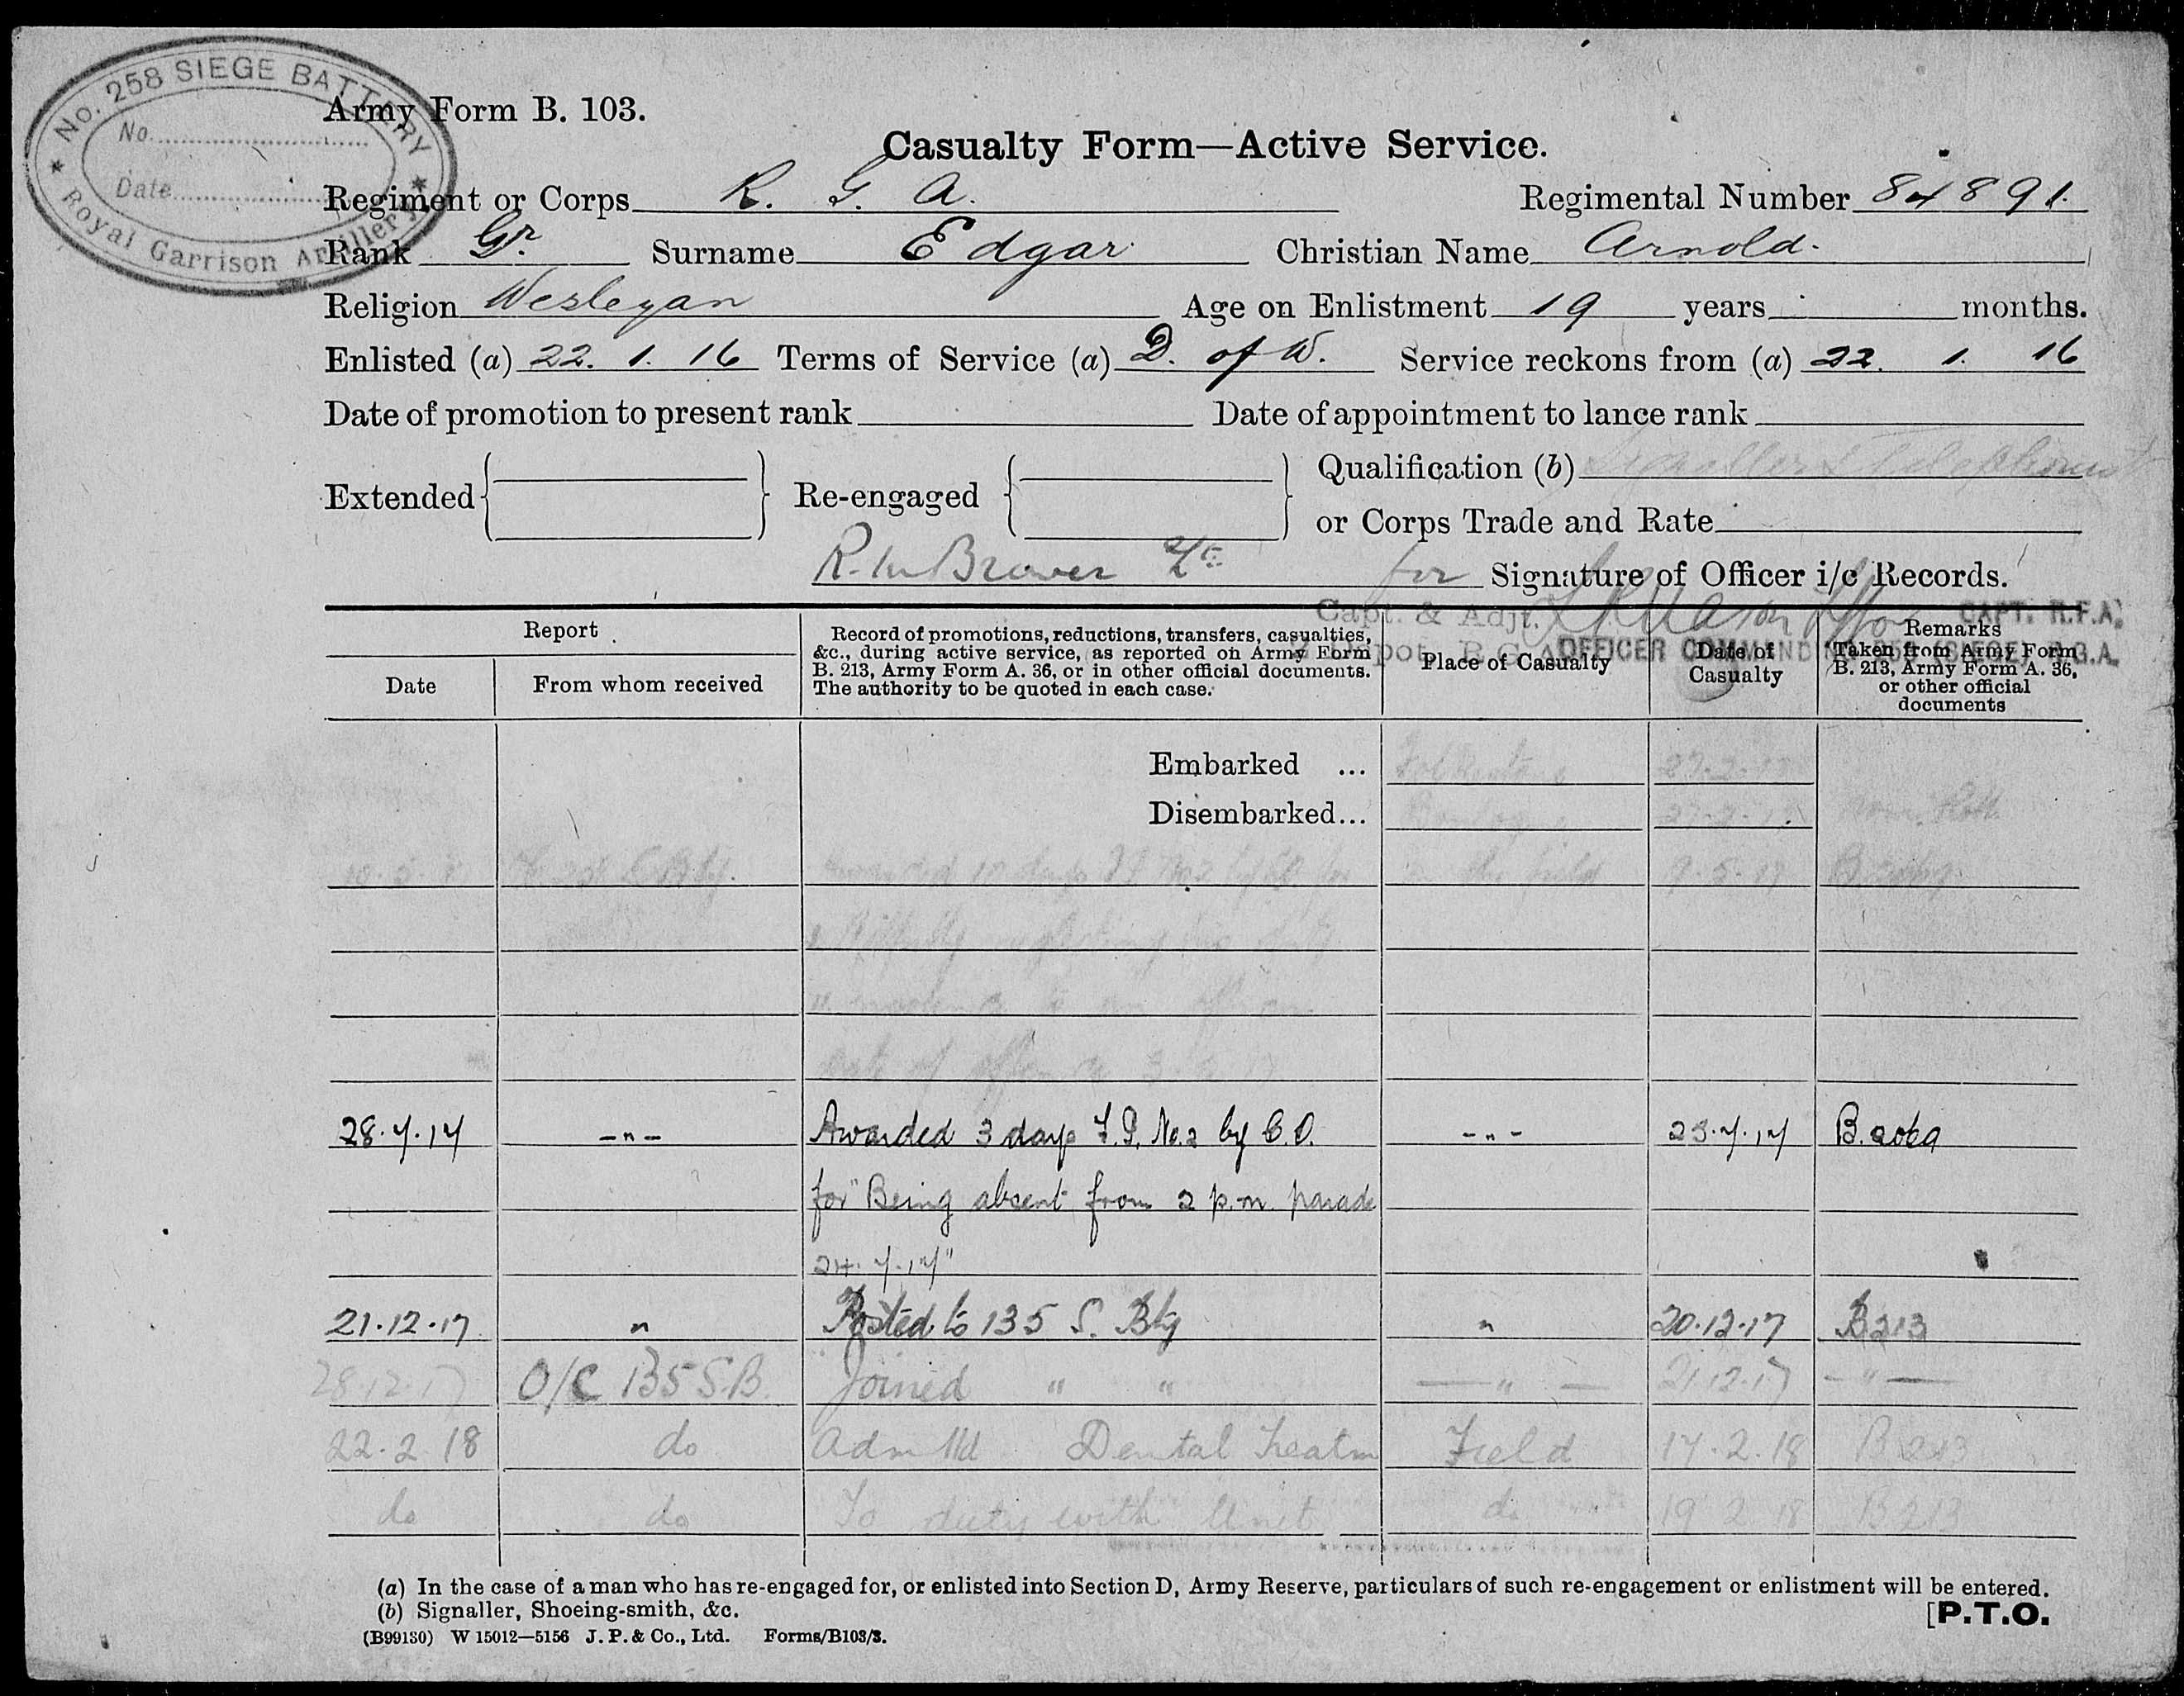 No. 258 SIEGE BATTERY
No.
Date
Royal Garrison Artillery
Army Form B. 103.
Casualty Form—Active Service.
Regiment or Corps R. G. A. Regimental Number 84891.
Rank Gr. Surname Edgar Christian Name Arnold.
Religion Wesleyan Age on Enlistment 19 years months.
Enlisted (a) 22. 1. 16 Terms of Service (a) D. of W. Service reckons from (a) 22. 1. 16
Date of promotion to present rank Date of appointment to lance rank
Extended Re-engaged Qualification (b) Signaller & Telephonist
or Corps Trade and Rate
for Signature of Officer i/c Records.
Capt. & Adjt. CAPT. R.F.A.
Depot, R.G.A. OFFICER COMMANDING 258 (SIEGE) R.G.A.
Report Record of promotions, reductions, transfers, casualties, &c., during active service, as reported on Army Form B. 213, Army Form A. 36, or in other official documents. The authority to be quoted in each case. Place of Casualty Date of Casualty Remarks Taken from Army Form B. 213, Army Form A. 36, or other official documents
Date From whom received
Embarked ... Folkestone
Disembarked... Boulogne
awarded 10 days F.P. No 2 by CO. for in the field
neglecting
Date of offence
28.7.17 -"- Awarded 3 days F.P. No. 2 by C.O. -"- 25.7.17 B.2069
for "Being absent from 2 p.m. parade
24.7.17"
21.12.17 " Posted to 135 S. Bty " 20.12.17 B213
28.12.17 O/C 135 S.B. Joined " " —"— 21.12.17 —"—
22.2.18 do Admitted Dental Treatm Field 17.2.18 B213
do do To duty with Unit do 19 2 18 B213
(a) In the case of a man who has re-engaged for, or enlisted into Section D, Army Reserve, particulars of such re-engagement or enlistment will be entered.
(b) Signaller, Shoeing-smith, &c.
[P.T.O.
(B99130) W 15012—5156 J. P. & Co., Ltd. Forms/B103/3.